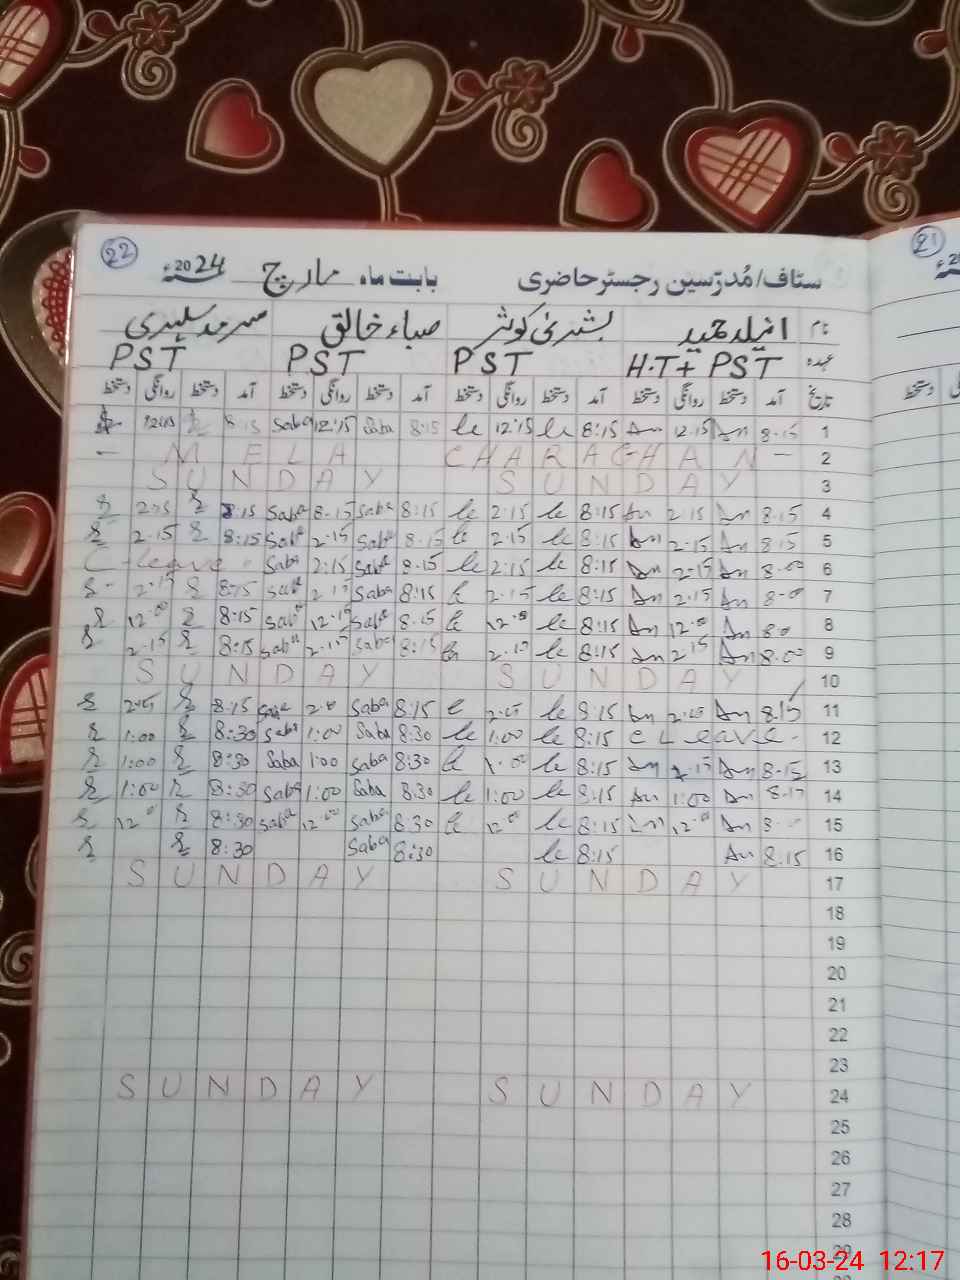 22 21
ستاف/مُدرّسین رجسٹر حاضری بابت ماہ مارچ 2024ء
نام انیلہ حمید بشریٰ کوثر صباء خالق
عہدہ H.T+ PST PST PST PST
تاریخ آمد دستخط روانگی دستخط آمد دستخط روانگی دستخط آمد دستخط روانگی دستخط آمد دستخط روانگی دستخط دستخط
1 8.15 An 12.15 An 8:15 le 12:15 le 8:15 Saba 12:15 Saba 8:15 12:15
2 — MELA CHARAGHAN —
3 SUNDAY SUNDAY
4 8.15 An 2.15 An 8:15 le 2:15 le 8:15 Saba 8.15 Saba 8:15 2:15
5 8.15 An 2.15 An 8:15 le 2.15 le 8.15 Saba 2.15 Saba 8:15 2.15
6 8.00 An 2.15 An 8:15 le 2:15 le 8.15 Saba 2:15 Saba C-leave
7 8.00 An 2.15 An 8:15 le 2.15 le 8:15 Saba 2.15 Saba 8:15 2.15
8 An 12.00 An 8:15 le 12.00 le 8.15 Saba 12.15 Saba 8:15 12.00
9 8.00 An 2.15 An 8:15 le le 8:15 Saba 2.15 Saba 8:15 2.15
10 SUNDAY SUNDAY
11 8.15 An An 8:15 le 8:15 Saba Saba 8.15
12 C Leave 8:15 le 1:00 le 8:30 Saba 1:00 Saba 8:30 1:00
13 8.15 An 2.15 An 8:15 le 1.00 le 8:30 Saba 1:00 Saba 8:30 1:00
14 An 1:00 An 8:15 le 1:00 le 8.30 Saba 1:00 Saba 8:30 1:00
15 An 12.00 8:15 le 12.00 le 8.30 Saba 12.00 Saba 8:30 12.00
16 8.15 An 8:15 le 8:30 Saba 8:30
17 SUNDAY SUNDAY
18
19
20
21
22
23
24 SUNDAY SUNDAY
25
26
27
28
29
16-03-24 12:17